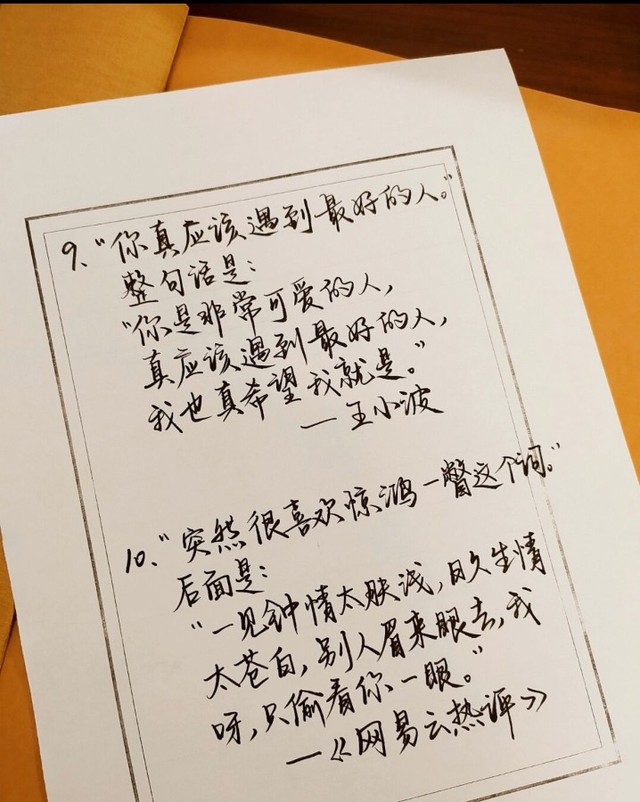 9、“你真应该遇到最好的人。”
整句话是：
“你是非常可爱的人，
真应该遇到最好的人，
我也真希望我就是。”
—王小波
10、“突然很喜欢惊鸿一瞥这个词。”
后面是：
“一见钟情太肤浅，日久生情
太苍白，别人眉来眼去，我
呀，只偷看你一眼。”
—《网易云热评》